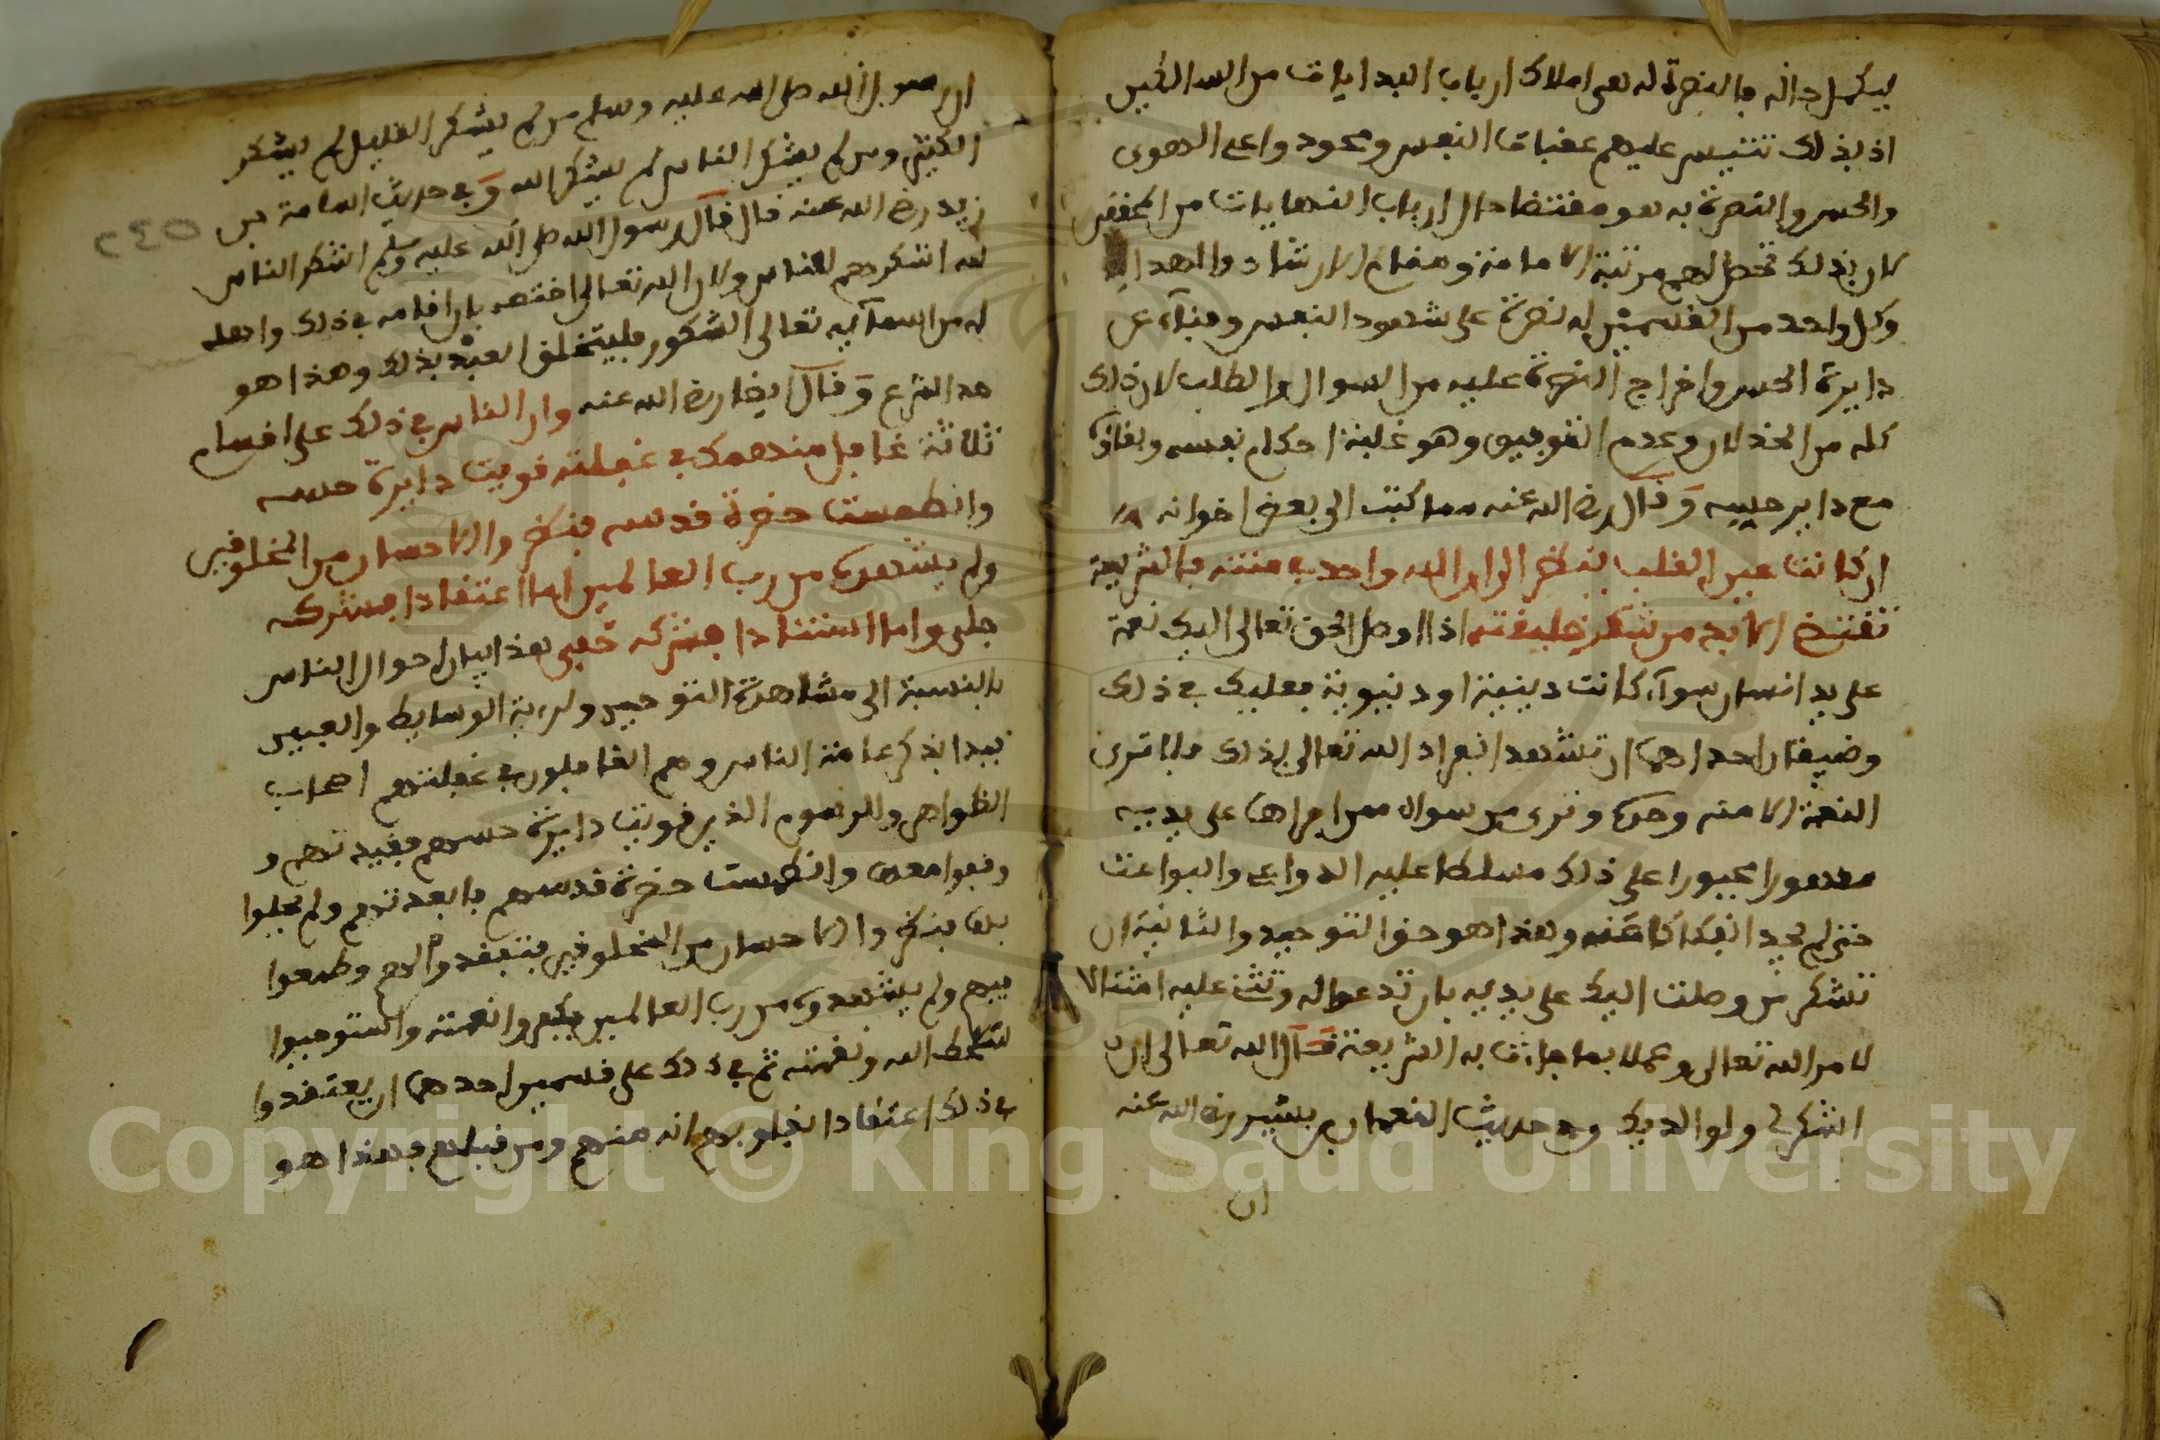 ليكمل حاله فالنصرة له هى املاك ارباب البدايات من السالكين
اذ بذلك تتيسر عليهم عقبات النفس ومحو دواعى الهوى
والحس والنصرة به هو مقتضا حال ارباب النهايات من المحققين
لان بذلك تحصل لهم مرتبة الامامة ومقام الارشاد والهداية
وكل واحد من القسمين له نصرة على شهود النفس وفناء عن
دايرة الحس واخراج النصرة عليه من السوال والطلب لان ذلك
كله من الخذلان وعدم التوفيق وهو غلبة احكام نفسه وبقاؤه
مع دايرة حسه وقال رضى الله عنه مما كتبت الى بعض اخوانه
ان كانت عين القلب تنظر الى ان الله واحد فى منته فالشريعة
تقتضى الا بد من شكر خليقته اذا اوصل الحق تعالى اليك نعمة
على يد انسان سوآء كانت دينية او دنيوية فعليك فى ذلك
وضيفتان احداهما ان تشهد انفراد الله تعالى بذلك فلا ترى
النعمة الا منه وحده وترى من سواه ممن اجراها على يديه
مقهورا مجبورا على ذلك مسلطا عليه الدواعى والبواعث
حتى لم يجد انفكاكا عنه وهذا هو حق التوحيد والثانية ان
تشكر من وصلت اليك على يديه بان تدعو له وتثنى عليه امتثالا
لامر الله تعالى وعملا بما جاءت به الشريعة قال الله تعالى ان
اشكر لى ولوالديك وفى حديث النعمان بن بشير رضى الله عنه
ان
ان رسول الله صلى الله عليه وسلم من لم يشكر القليل لم يشكر
الكثير ومن لم يشكر الناس لم يشكر الله وفى حديث اسامة بن
٢٤٥
زيد رضى الله عنه قال قال رسول الله صلى الله عليه وسلم اشكر الناس
لله اشكرهم للناس ولان الله تعالى اختصه بان اقامه فى ذلك واهله
له من اسمآيه تعالى الشكور فليتخلق العبد بذلك وهذا هو
هد الشرع وقال ايضا رضى الله عنه وان الناس فى ذلك على اقسام
ثلاثة غافل منهمك فى غفلته قويت دايرة حسه
وانطمست حضرة قدسه فنظر الاحسان من المخلوقين
ولم يشهده من رب العالمين اما اعتقادا فشركه
جلى واما استنادا فشركه خفى هذا بيان احوال الناس
بالنسبة الى مشاهدة التوحيد ولرءية الوسايط والعبيد
فبدا بذكر عامة الناس وهم الغافلون فى غفلتهم اصحاب
الظواهر والرسوم الذين قويت دايرة حسهم فقيدتهم و
وقفوا معها وانطمست حضرة قدسهم فابعدتهم ولم يحلوا
بها فنظروا الاحسان من المخلوقين فتعبدوا لهم وطمعوا
فيهم ولم يشهدوه من رب العالمين فكفروا نعمته واستوجبوا
سخط الله ونقمته ثم فى ذلك على قسمين احدهما ان يعتقدوا
فى ذلك اعتقادا بقلوبهم انه منهم ومن قبلهم فهذا هو
Copyright © King Saud University